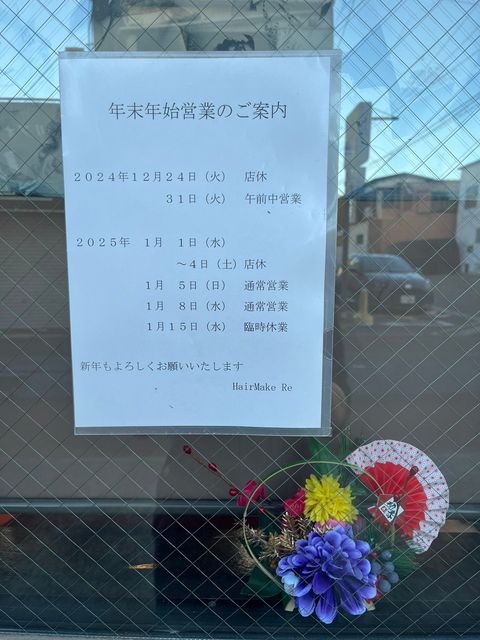 年末年始営業のご案内
２０２４年１２月２４日（火） 店休
３１日（火） 午前中営業
２０２５年 １月 １日（水）
～４日（土）店休
１月 ５日（日） 通常営業
１月 ８日（水） 通常営業
１月１５日（水） 臨時休業
新年もよろしくお願いいたします
HairMake Re